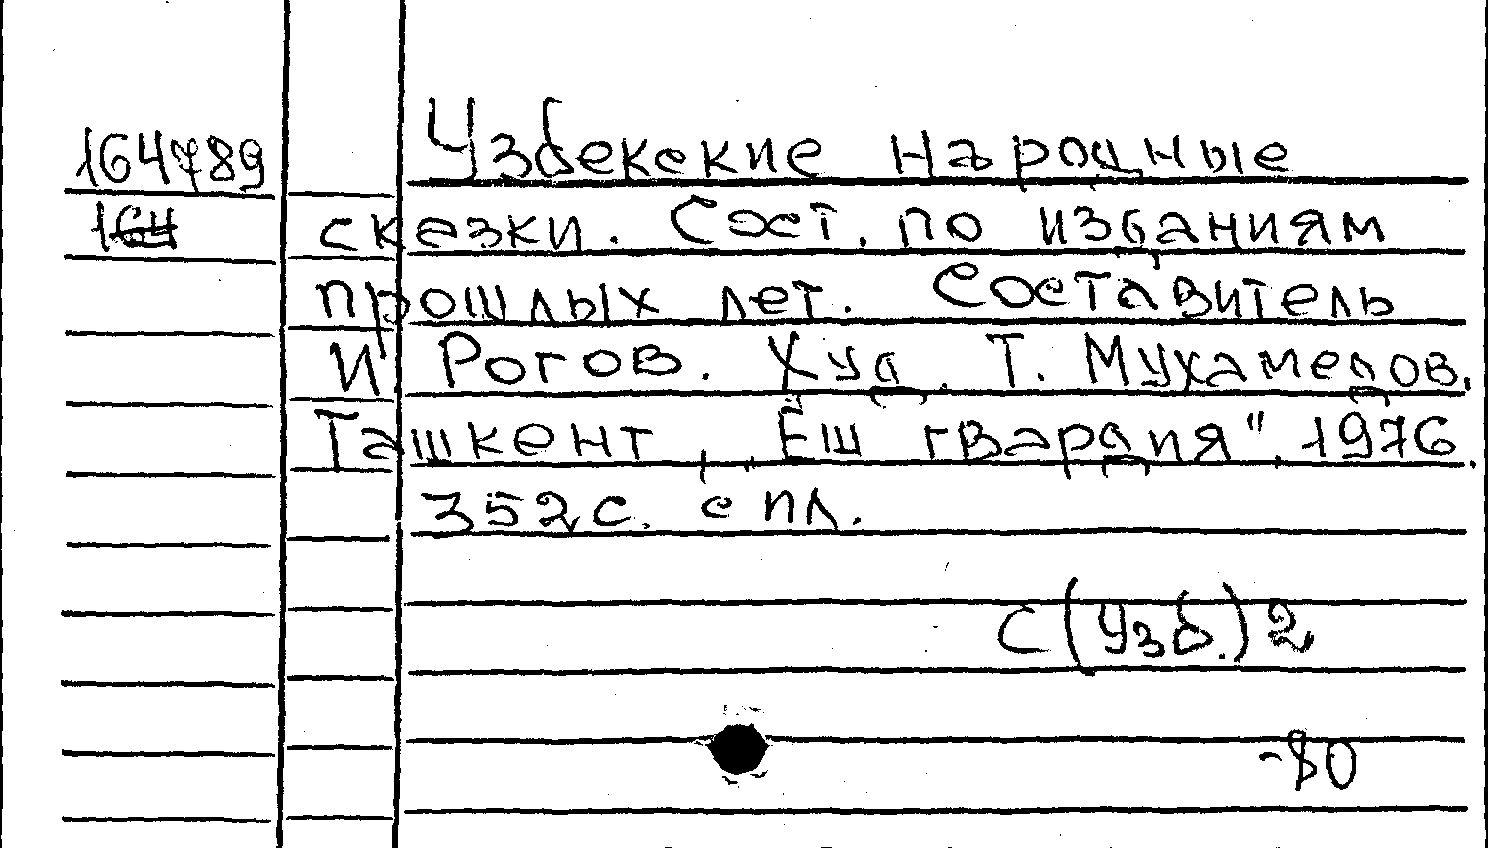 164789 Узбекские народные
сказки. Сост. по изданиям
прошлых лет. Составитель
И. Рогов. Худ. Т. Мухамедов.
Ташкент, „Ёш гвардия", 1976.
352с. с ил.
С(Узб.)2
-80